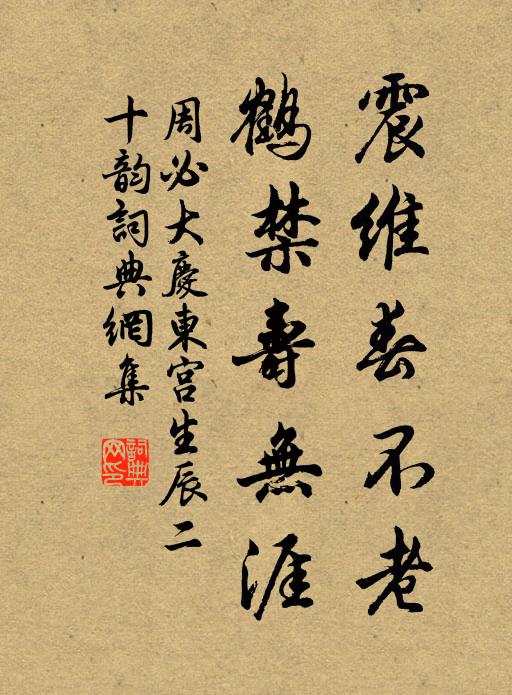 震維春不老
鶴禁壽無涯
周必大慶東宮生辰二
十韵詞典網集
詞典
网印